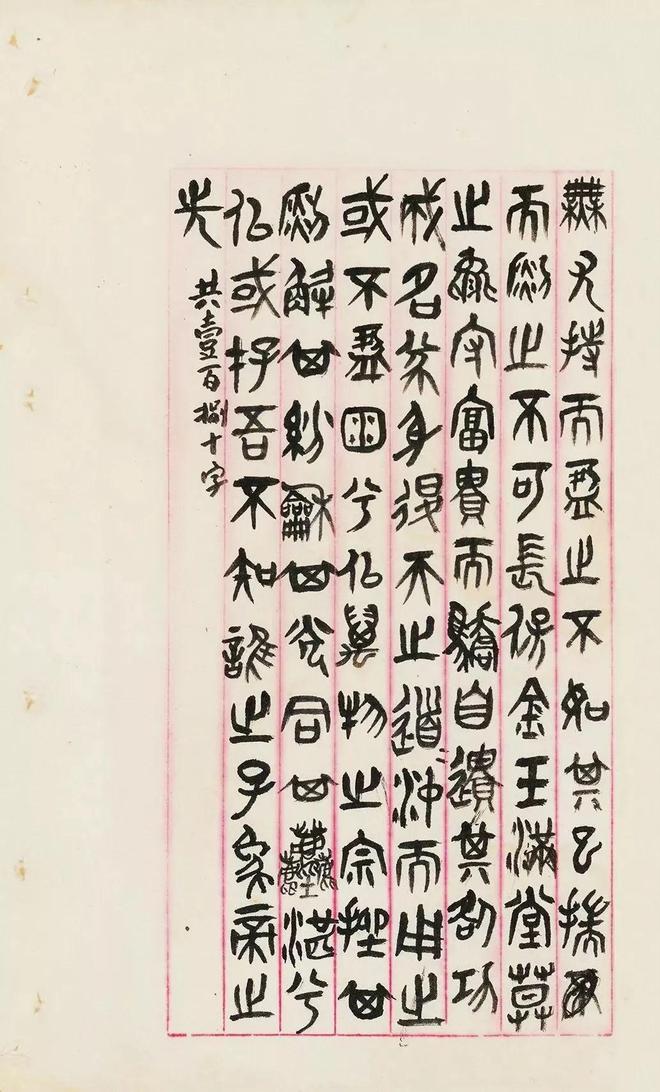 無尤持而盈之不如其已揣
而銳之不可長保金玉滿堂莫
之能守富貴而驕自遺其咎功
成名遂身退天之道沖而用之
或不盈淵兮似萬物之宗挫其
銳解其紛龢其光同其塵湛兮
似或存吾不知誰之子象帝之
先 共壹百捌十字